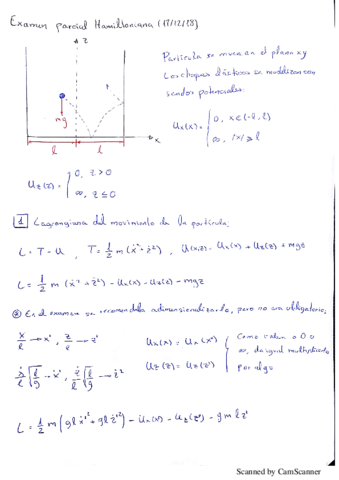 Examen parcial Hamiltoniana (17/12/18)
z
Partícula se mueve en el plano xy
Los choques elásticos se modelizan con
sendos potenciales:
mg
x
l l
Ux(x) = { 0, x∈(-l, l)
∞, |x| ≥ l
Uz(z) = { 0, z>0
∞, z≤0
1 Lagrangiana del movimiento de la partícula.
L = T - U , T = 1/2 m (ẋ² + ż²) , U(x,z) = Ux(x) + Uz(z) + mgz
L = 1/2 m (ẋ² + ż²) - Ux(x) - Uz(z) - mgz
En el examen se recomendaba adimensionalizarlo, pero no era obligatorio.
x/l → x' , z/l → z'
Ux(x) = Ux(x')
Uz(z) = Uz(z')
Como valen 0 o
∞, da igual multiplicarlo
por algo
ẋ/l √l/g → ẋ' , ż/l √l/g → ż'
L = 1/2 m (gl ẋ'² + gl ż'²) - Ux(x') - Uz(z') - gmlz'
Scanned by CamScanner